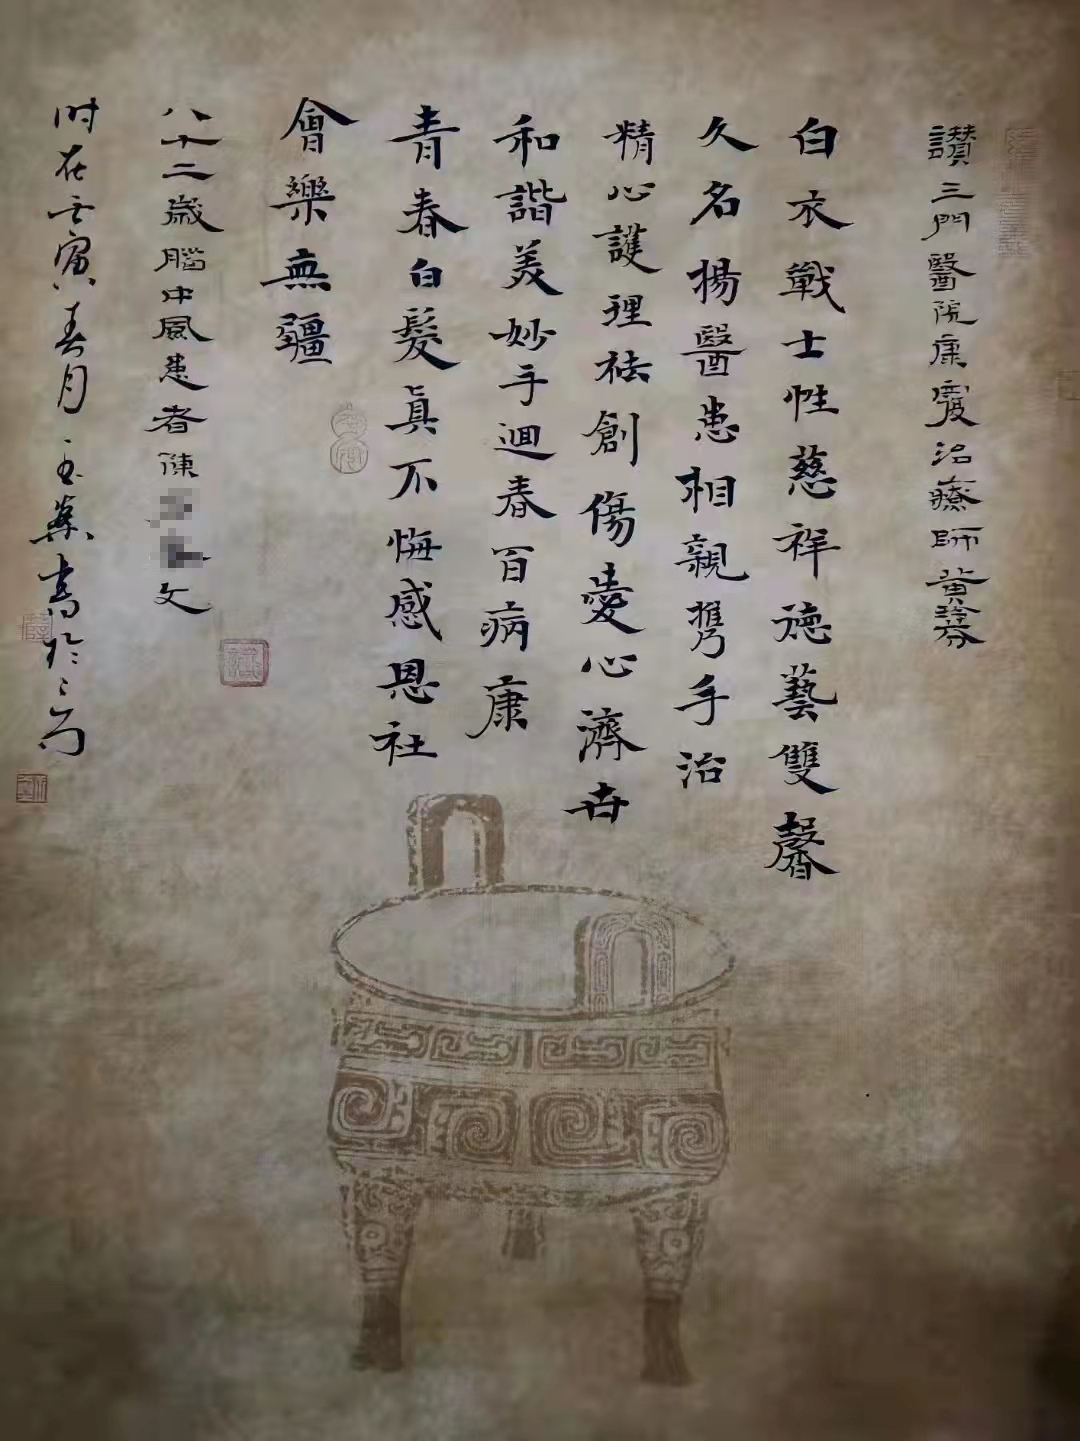 讃三門醫院康復治療師黄
白衣戰士性慈祥德藝雙馨
久名揚醫患相親携手治
精心護理祛創傷愛心濟世
和諧美妙手迴春百病康
青春白髮真不悔感恩社
會樂無疆
八十二歲腦中風患者陳 文
时在壬寅春月 書於